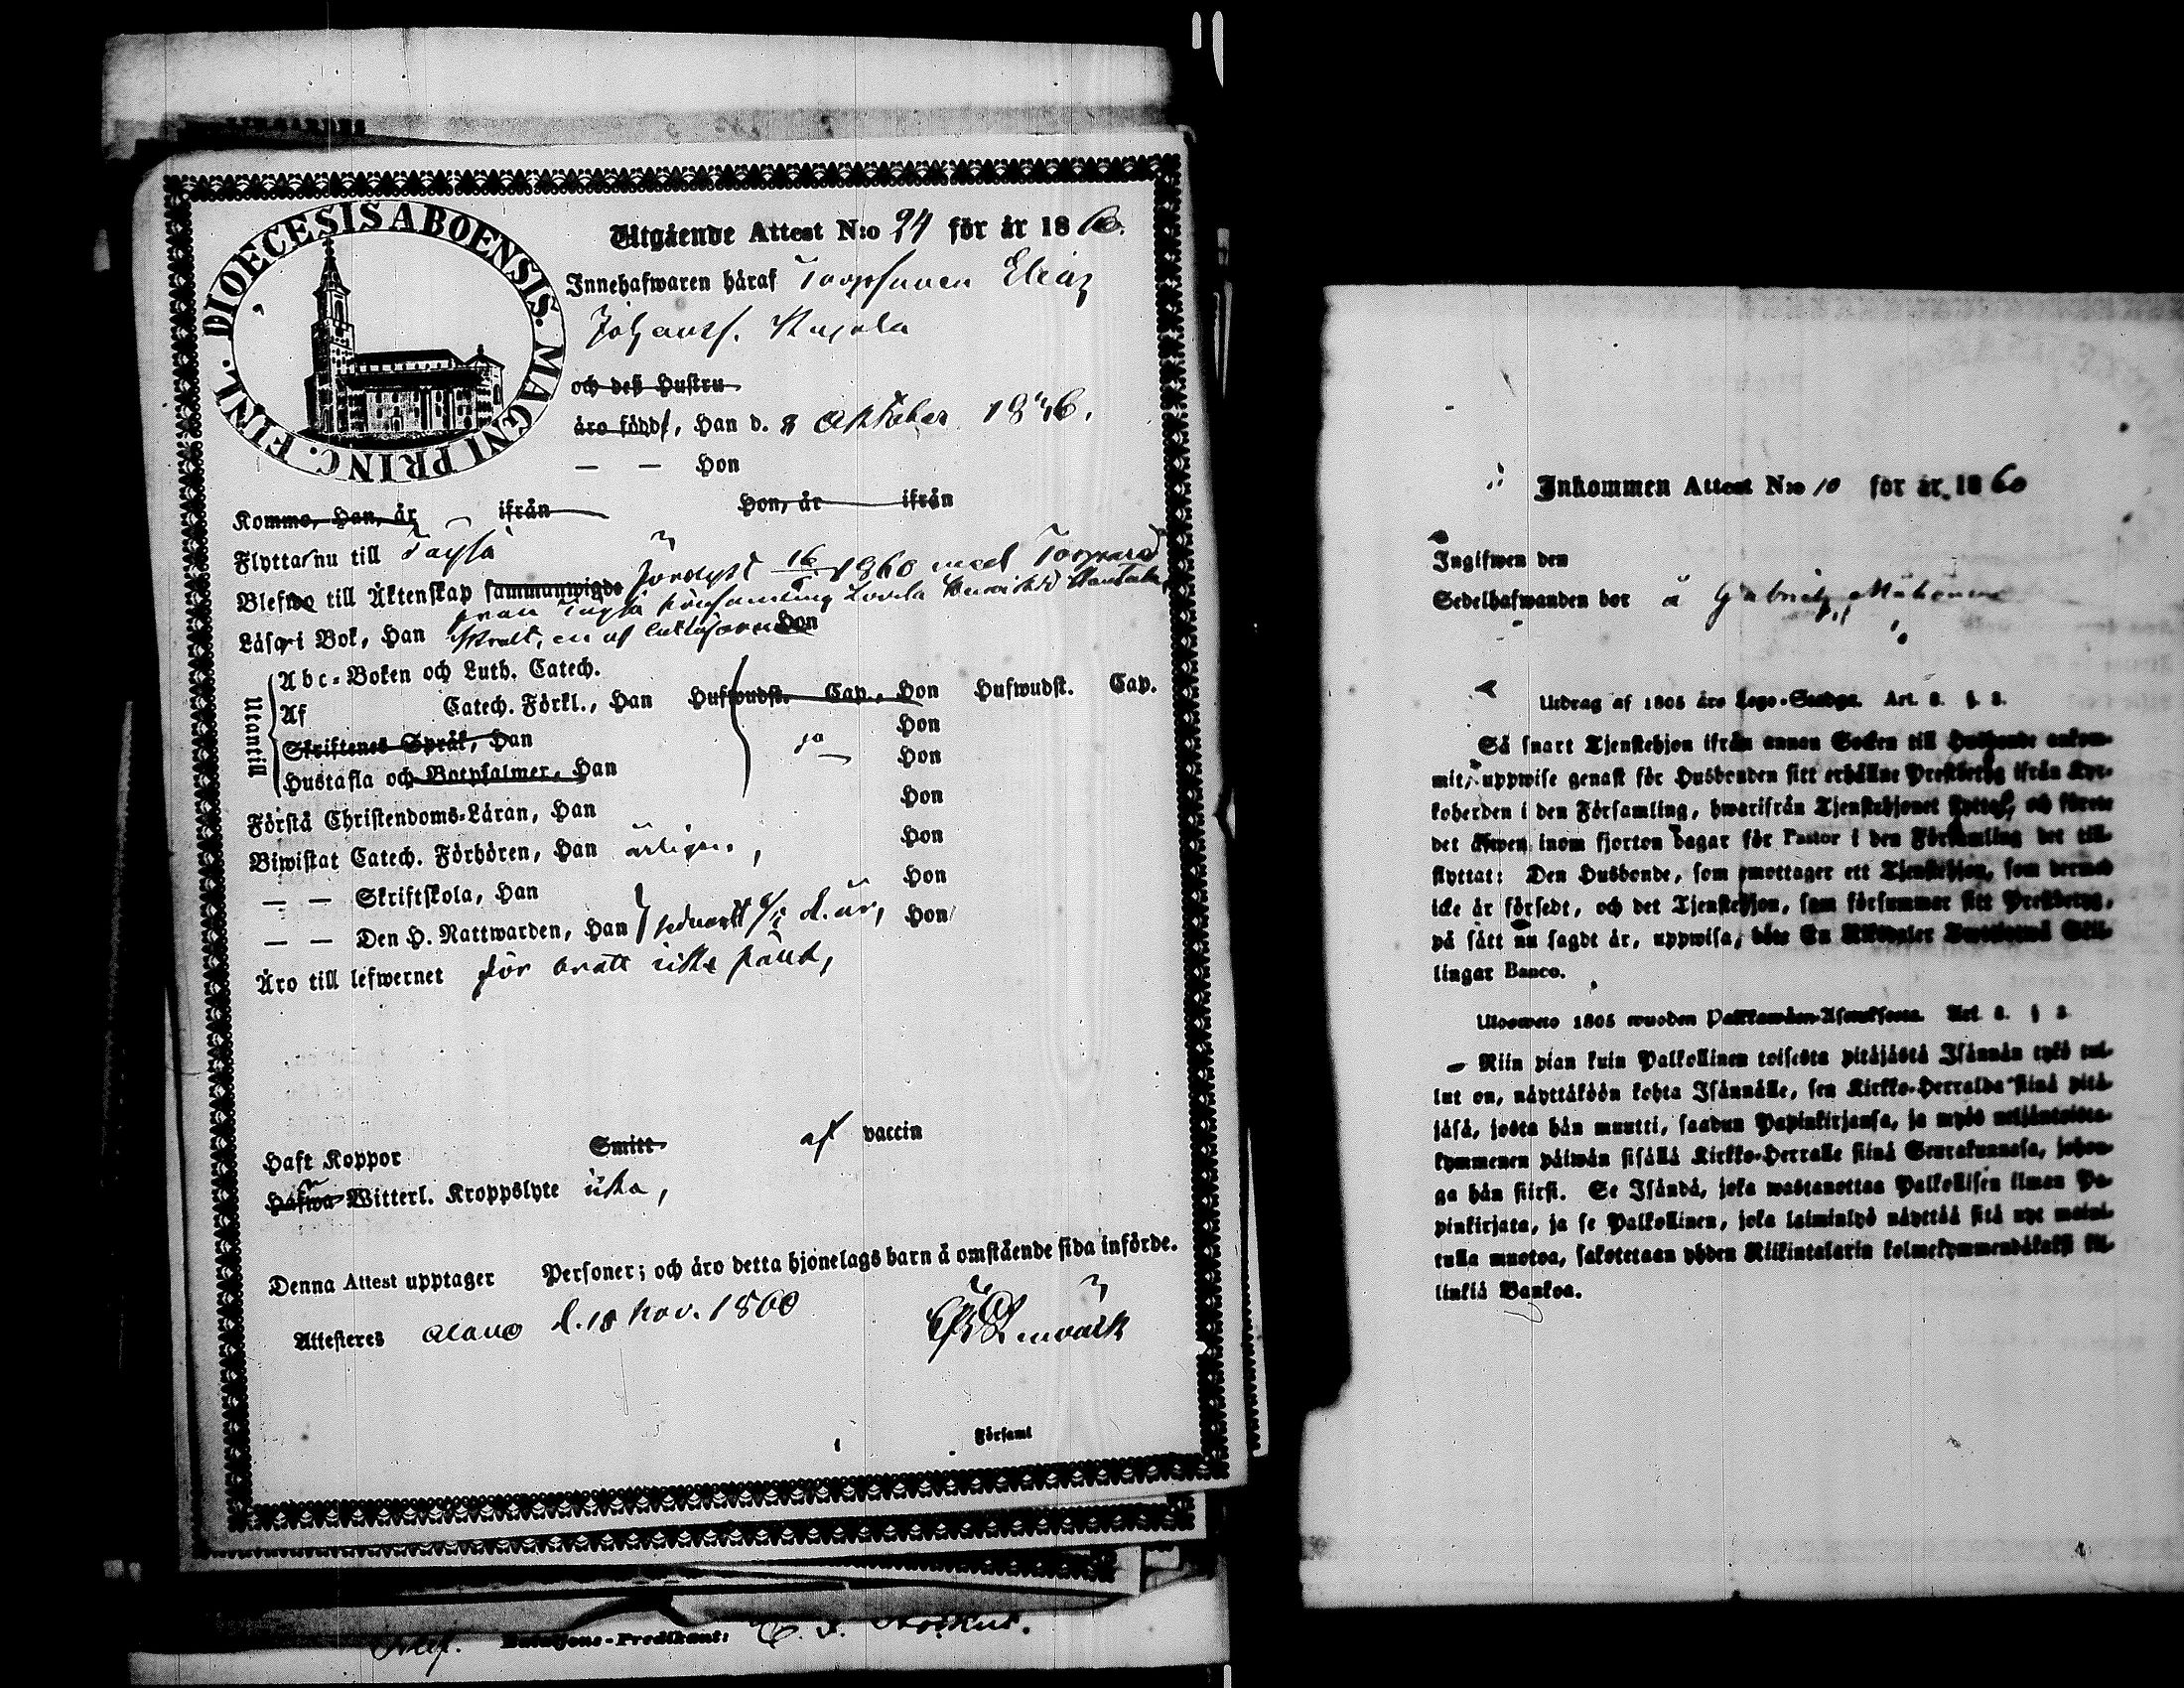 DIOECESIS ABOENSIS. MAGNI PRINC. FINL.
Utgående Attest N:o 24 för år 1860.
Innehafwaren häraf Torpsonen Elias
Johansf. Kujala
och deß Hustru
äro född, Han d. 8 Oktober 1836.
— — Hon
Komme, Han, år ifrån Hon, år ifrån
Flyttar nu till Töysä
Blefwo till Äktenskap sammanwigde förlyst 1860 med
från Töysä församling Lovisa
Läser i Bok, Han Hon
Utantill
Abc-Boken och Luth. Catech.
Af Catech. Förkl., Han Hufwudst. Cap., Hon Hufwudst. Cap.
Skriftenes Språk, Han Hon
Hustafla och Botpsalmer, Han ja Hon
Första Christendoms-Läran, Han Hon
Biwistat Catech. Förhören, Han årligen, Hon
— — Skriftskola, Han Hon
— — Den H. Nattwarden, Han sednast d. år, Hon
Äro till lefwernet för brott icke känd,
Haft Koppor Smitt af vaccin
Hafwa Witterl. Kroppslyte icke,
Denna Attest upptager Personer; och äro detta hjonelags barn å omstående sida införde.
Attesteres Alavo d. 18 Nov. 1860
Församl
Predikant:
Inkommen Attest N:o 10 för år 1860
Ingifwen den
Sedelhafwanden bor å Gabriel
Utdrag af 1805 års Lego-Stadga. Art. 8. §. 8.
Så snart Tjenstehjon ifrån annan Socken till Husbonde ankom-
mit, uppwise genast för Husbonden sitt erhållne Prestbetyg ifrån Kyr-
koherden i den Församling, hwarifrån Tjenstehjonet flyttat, och förete
det äfwen inom fjorton dagar för Pastor i den Församling det till-
flyttat: Den Husbonde, som emottager ett Tjenstehjon, som dermed
icke är försedt, och det Tjenstehjon, som försummar sitt Prestbetyg,
på sätt nu sagdt är, uppwisa, böte En Riksdaler Skil-
lingar Banco.
Ulosweto 1805 wuoden Palkkawäen-Asetuksesta. Art. 8. §
Niin pian kuin Palkollinen toisesta pitäjästä Isännän tykö tul-
lut on, näyttäköön kohta Isännälle, sen Kirkko-Herralda siinä pitä-
jäsä, josta hän muutti, saadun Papinkirjansa, ja myös neljäntoista-
kymmenen päiwän sisällä Kirkko-Herralle siinä Seurakunnasa, johon-
ga hän siirsi. Se Isändä, joka wastanottaa Palkollisen ilman Pa-
pinkirjata, ja se Palkollinen, joka laiminlyö näyttää sitä nyt maini-
tulla muotoa, sakotetaan yhden Riikintalarin kolmekymmendäkaksi kil-
linkiä Bankoa.